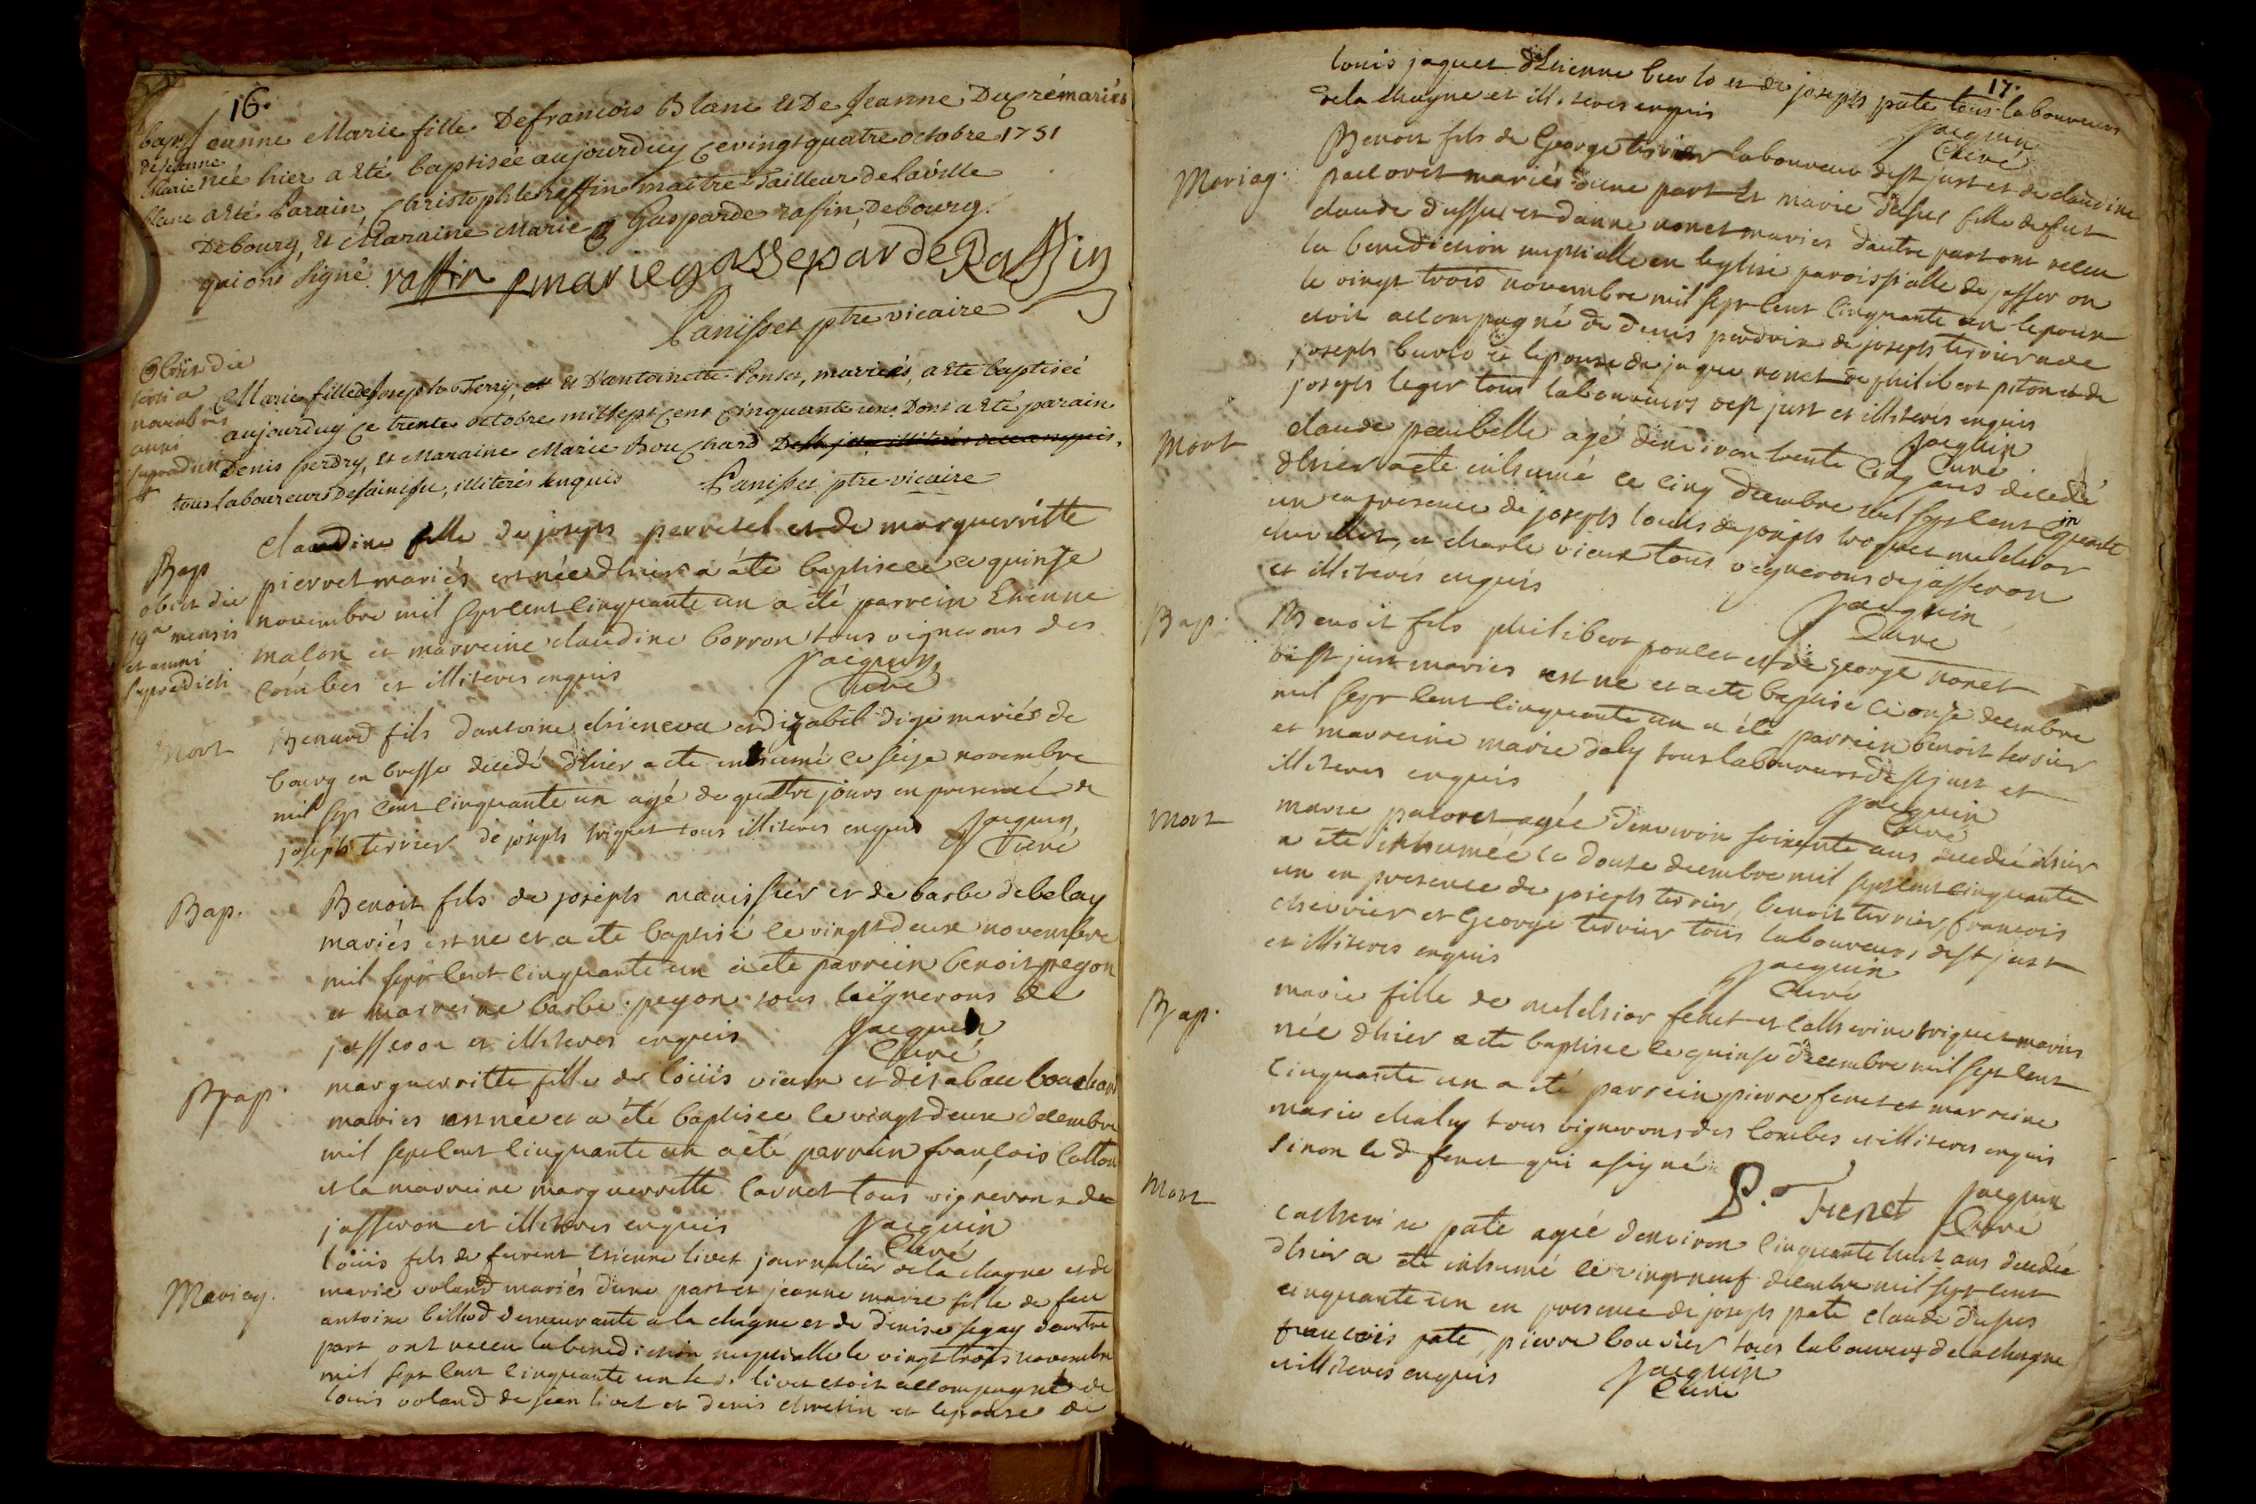 16.
bap
de jeanne
Marie
blanc
Jeanne Marie fille De francois Blanc & De Jeanne Ducré mariés
née hier a été baptisée aujourduy ce vingt quatre octobre 1751
a été Parain Christophle raffin maitre Tailleur de la ville
De bourg, et Maraine Marie Gasparde rafin De bourg.
qui ont signé raffin marie gasseparde Raffin
Panisset ptre vicaire
Obiit die
novembris
anni
supradicti
Marie fille de Joseph Terry, et D'antoinette Ponset, mariés, a ete baptisée
aujourduy ce trente octobre mil sept cent cinquante un, Dont a été parain
Denis perdry, et Maraine Marie Bouchard
tous laboureurs De saint just, illiterés enquis Panisset ptre vicaire
Bap
obiit die
19a mensis
et anni
supradicti
claudine fille de joseph perretel et de marguerritte
pierret mariés est née dhier a été baptisee ce quinse
novembre mil sept cent cinquante un a été parrein Etienne
malan et marreine claudine borron tous vignerons des
combes et illiterés enquis Jacquin
Curé
Mort
Benard fils dantoine chieneva et dizabel digi mariés de
bourg en bresse décédé dhier a ete inhumé ce seise novembre
mil sept cent cinquante un agé de quattre jours en presence de
joseph terrier de joseph triquet tous illiteres enquis Jacquin
Curé
Bap.
Benoit fils de joseph manissier et de barbe debelay
mariés est ne et a ete baptisé le vingt deux novembre
mil sept cent cinquante un a ete parrein benoit pegon
et marreine barbe pegon tous vignerons de
jasseron et illiteres enquis Jacquin
Curé
Bap.
marguerritte fille de louis vieux et disabau bouchard
maries est née et a été baptisee le vingt deux décembre
mil sept cent cinquante un a été parrein françois cotton
et la marreine marguerritte carnet tous vignerons de
jasseron et illiteres enquis Jacquin
Curé
Mariag.
louis fils de furent etienne livet journalier de la chagne et de
marie voland mariés d'une part et jeanne marie fille de feu
antoine billiod demeurante a la chagne et de denise segay d'autre
part ont receu la benediction nuptialle le vingt trois novembre
mil sept cent cinquante un le d. livet etoit accompagné de
louis voland de jean livet et denis chretin et lepouse de
17.
louis jaquet d'Etienne burlo et de joseph pate tous laboureurs
de la chagne et illiteres enquis Jacquin
Curé
Mariag.
Benoit fils de George terrier laboureur de st just et de claudine
pacoret mariés dune part et marie dufus fille de feut
claude dussus et d'anne nonet maries dautre part ont receu
la benediction nuptialle en leglise paroissialle de jasseron
le vingt trois novembre mil sept cent cinquante un lepoux
etoit accompagné de denis perdrix de joseph terrier et de
joseph burlo et lepouse de jaque nonet de philibert piton et de
joseph leger tous laboureurs de st just et illiterés enquis
Jacquin
Curé
Mort
claude peubelle agé denviron trente cinq ans décédé
dhier a ete inhumé ce cinq decembre mil sept cent cinquante
un en presence de joseph louis de joseph troquet melchior
chevillet, et charle vieux tous vignerons de jasseron
et illiterés enquis Jacquin
Curé
Bap.
Benoit fils philibert poncet et de george nonet
de st just maries est né et a ete baptisé ce onse decembre
mil sept cent cinquante un a été parrein benoit terrier
et marreine marie daly tous laboureurs de st just et
illiteres enquis Jacquin
Curé
Mort
marie pacoret agée denviron soixante ans decedé dhier
a eté inhumée ce douse decembre mil sept cent cinquante
un en presence de joseph terrier, benoit terrier, francois
chevrier et George terrier tous laboureurs de st just
et illiteres enquis Jacquin
Curé
Bap.
marie fille de melchior fenet et catherine triquet maries
née dhier a ete baptisee le quinse decembre mil sept cent
cinquante un a eté parrein pierre fenet et marreine
marie chaly tous vignerons des combes et illiteres enquis
sinon le d fenet qui a signé
P. Frenet Jacquin
Curé
Mort
catherine pate agée denviron cinquante huit ans decedée
dhier a ete inhumé le vingt neuf decembre mil sept cent
cinquante un en presence de joseph pate claude dupus
francois pate, pierre bouvier tous laboureurs de la chagne
et illiteres enquis Jacquin
Curé